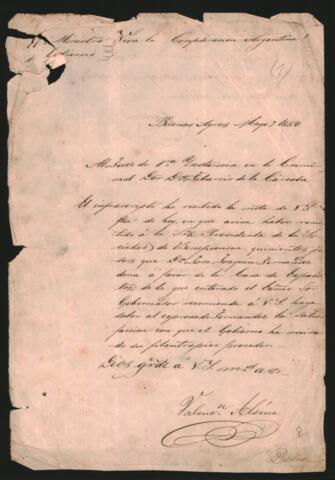 El Ministro de Gobierno
Viva la Confederacion Argentina!
(1)
Buenos Ayres Mayo 7 1852
Al Juez de 1ª Instancia en lo Crimi
nal Dor Dn Eustaquio de la Cárcova
El infrascripto ha recibido la nota de V. S.
fha de hoy, en que avisa haber remi
tido à la Sra Presidenta de la So
ciedad de Beneficencia, quinientos pe
sos que Dn Joaquin Fernandez
dona à favor de la Casa de Exposi
tos de lo que enterado el Exmo Sor
Gobernador recomienda à V. S. haga
saber al expresado Fernandez la satis
faccion con que el Gobierno ha mira
do su filantropico proceder.
Dios gde à V. S. ms as
Valentn Alsina